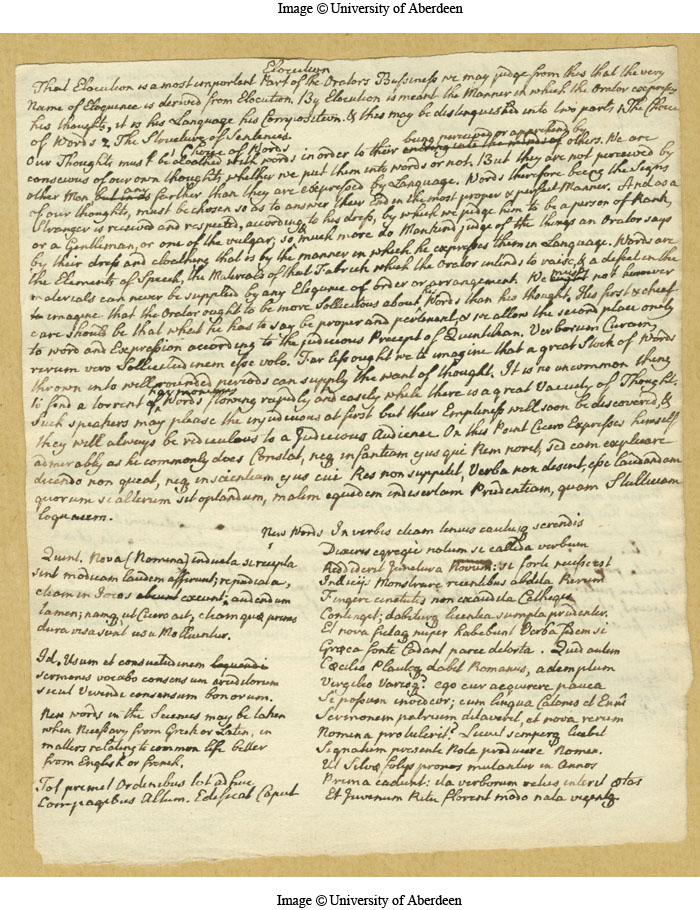 Image © University of Aberdeen
Elocution
That Elocution is a most important Part of the Orators Bussiness we may judge from this that the very
Name of Eloquence is derived from Elocution. By Elocution is meant the Manner in which the Orator expresses
his thoughts, it is his Language his Composition. & this may be distinguished into two parts 1 The Choice
of Words 2 The Structure of Sentences.
1 Choice of Words
being perceived or apprehend by
Our Thoughts must be cloathed with words in order to their entering into the minds of others. We are
conscious of our own thoughts whether we put them into words or not. But they are not perceived by
other Men any farther than they are expressed by Language. Words therefore being the Signs
of our thoughts, must be chosen so as to answer their End in the most proper & perfect Manner. And as a
Stranger is received and respected, according to his dress, by which we judge him to be a person of Rank,
or a Gentleman, or one of the vulgar; so much more do Mankind judge of the things an Orator says
by their dress and cloathing that is by the manner in which he expresses them in Language. Words are
the Elements of Speech, the Materials of that Fabrick which the Orator intends to raise, & a defect in the
materials can never be supplied by any Elegance of order or arrangement. We must not however
to imagine that the Orator ought to be more Sollicitous about Words than his thought, His first & chief
care should be that what he has to say be proper and pertinent, & we allow the second place only
to word and Expression according to the judicious Precept of Quintilian. Verborum Curam,
rerum vero Sollicitudinem esse volo. Far less ought we to imagine that a great Stock of Words
thrown into well rounded periods can supply the want of thought. It is no uncommon thing
harmonious
to find a torrent of Words flowing rapidly and easely while there is a great Vacuity of Thought.
Such speakers may please the injudicious at first but their Emptiness will soon be discovered, &
they will always be rediculous to a Judicious Audience. On this Point Cicero Expresses himself
admirably as he commonly does Constat, neq infantiam ejus qui Rem norit, sed eam explicare
dicendo non queat, neq inscientiam ejus cui Res non suppetit, Verba non desint, esse laudandam
quorum si alterum sit optandum, malim equidem indisertam Prudentiam, quam Stultitiam
loquacem.
New Words In verbis etiam tenuis cautusq serendis
Dixeris egregie notum si callida verbum
Reddiderit Junctura Novum: si forte necesse est
Indicijs Monstrare recentibus abdita Rerum
Fingere cinctutis non exaudita Cethegis
Continget; dabiturq licentia sumpta prudenter.
Et nova fictaq nuper habebunt Verba fidem si
Græco fonte Cadant parce detorta. Quid autem
Cæcilio Plautoq dabit Romanus, ademptum
Virgilio Varioq? ego cur acquirere pauca
Si possum invideor; cum lingua Catonis et Enni
Sermonem patrium ditaverit, et nova rerum
Nomina protulerit? Licuit semperq licebit
Signatum presente Nota producere Nomen.
Ut Silvæ folijs pronos mutantur in Annos
Prima cadunt: ita verborum vetus interit ætas
Et Juvenum Ritu florent modo nata vigentq
Quint. Nova (Nomina) induta si recepta
sint modicam laudem afferunt; repudiata,
etiam in Jocos exeunt; audendum
tamen; namq, ut Cicero ait, etiam quæ primo
dura visa sunt usu Molliuntur.
Id, Usum et consuetudinem
sermones vocabo consensum eruditorum
sicut Vivendi consensum bonorum.
New words in the Sciences may be taken
when Necessary from Greek or Latin, in
matters relating to common life better
from English or french.
Tot premit Ordinibus tot adhuc
Compagibus Altum. Edificat Caput
Image © University of Aberdeen